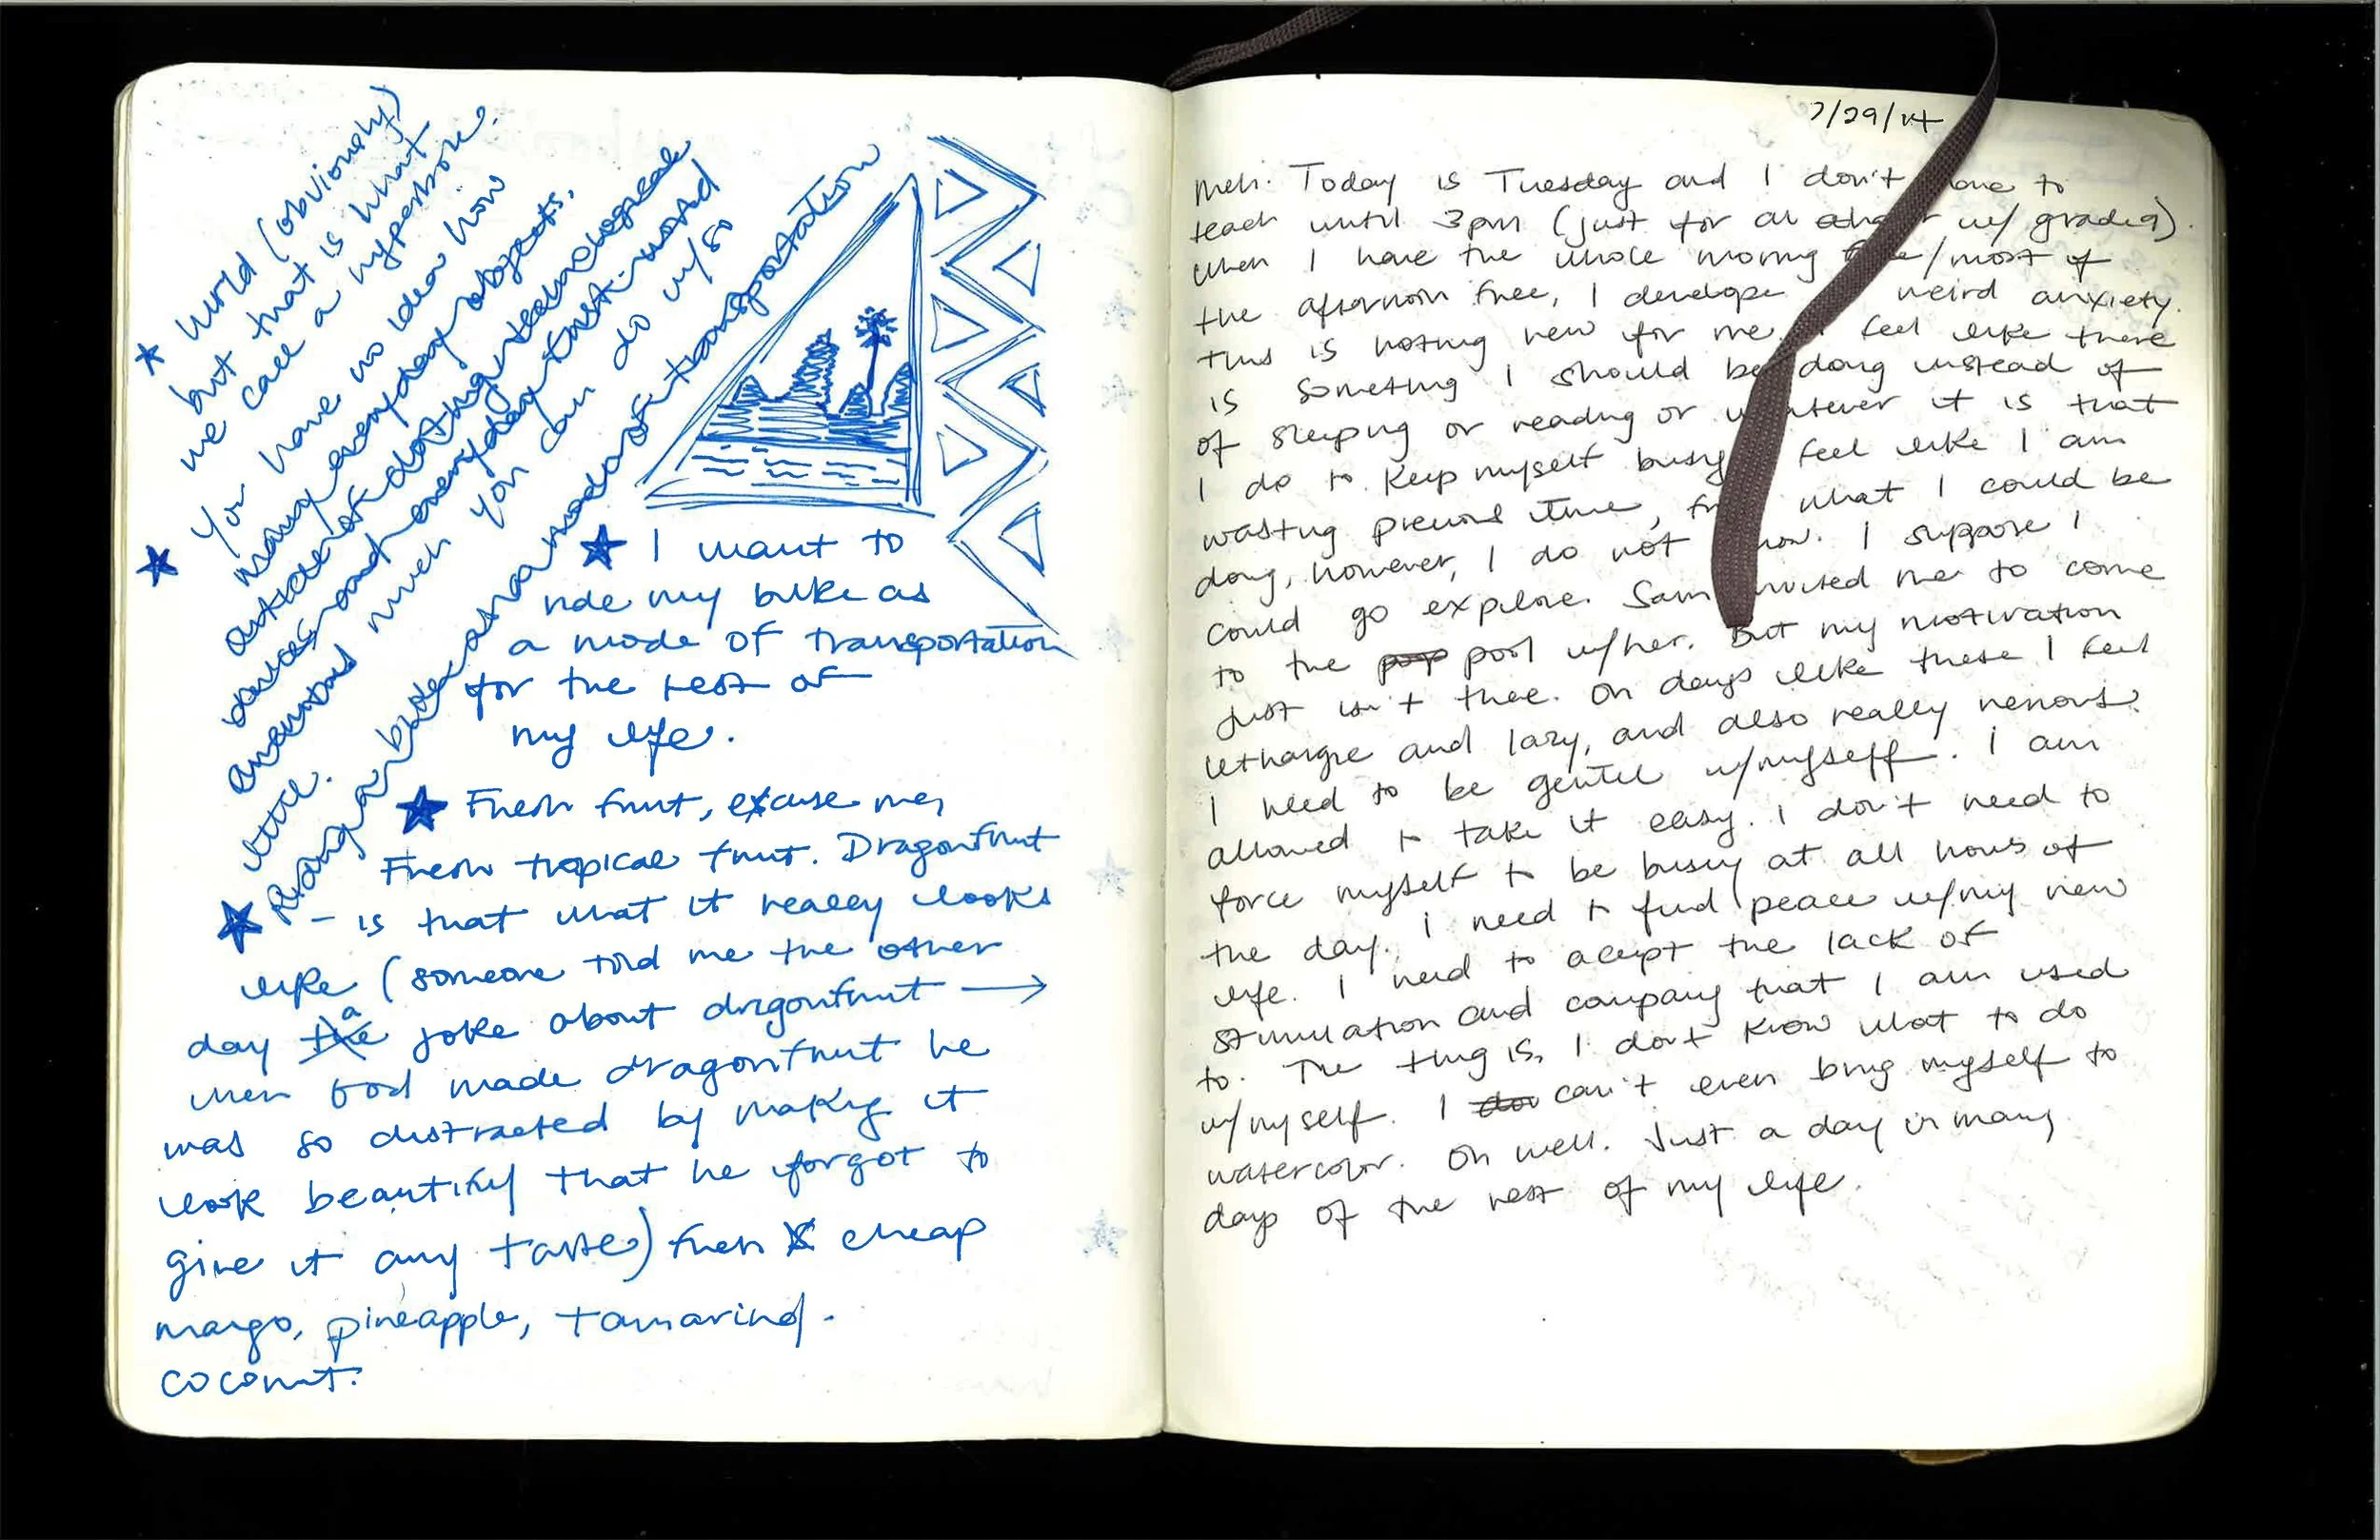 world (obviously)
but that is what
we call a hyperbole.
You have no idea how
many everyday objects,
articles of clothing, technological
devices, and everyday first-world
amenities you can do w/so
much
little.
Riding a bike as a mode of transportation
I want to
ride my bike as
a mode of transportation
for the rest of
my life.
Fresh fruit, excuse me,
Fresh tropical fruit. Dragonfruit
- is that what it really looks
like (someone told me the other
day the a joke about dragonfruit →
when God made dragonfruit he
was so distracted by making it
look beautiful that he forgot to
give it any taste) fresh & cheap
mango, pineapple, tamarind.
coconut.
7/29/14
Meh. Today is Tuesday and I don't to
teach until 3pm (just for an w/ grade 9).
When I have the whole morning /most of
the afternoon free, I develope weird anxiety.
This is nothing new for me. I feel like there
is something I should be doing instead of
of sleeping or reading or whatever it is that
I do to keep myself busy feel like I am
wasting precious time, what I could be
doing, however, I do not know. I suppose I
could go explore. Sam invited me to come
to the pool w/her. But my motivation
just isn't there. On days like these I feel
lethargic and lazy, and also really nervous.
I need to be gentle w/myself. I am
allowed to take it easy. I don't need to
force myself to be busy at all hours of
the day. I need to find peace w/my new
life. I need to accept the lack of
stimulation and company that I am used
to. The thing is, I don't know what to do
w/myself. I can't even bring myself to
watercolor. Oh well. Just a day in many
days of the rest of my life.